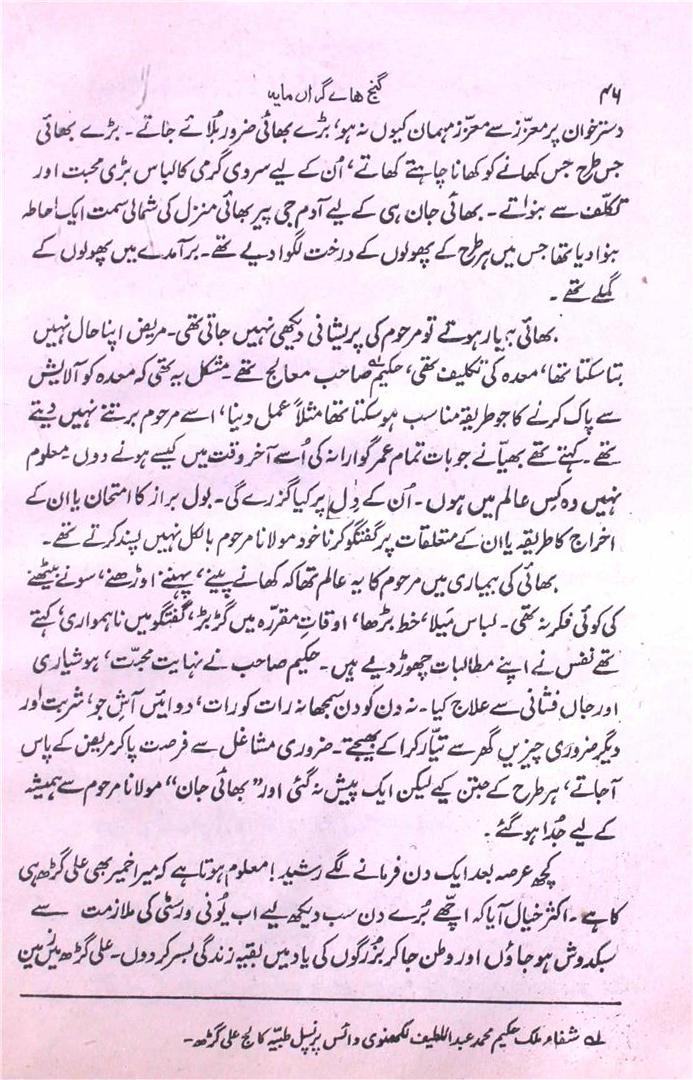 ۴۶ گنج ھائے گراں مایہ
دسترخوان پر معزّز سے معزّز مہمان کیوں نہ ہو، بڑے بھائی ضرور بُلائے جاتے۔ بڑے بھائی
جس طرح جس کھانے کو کھانا چاہتے کھاتے، اُن کے لیے سردی گرمی کا لباس بڑی محبت اور
تکلّف سے بنواتے۔ بھائی جان ہی کے لیے آدم جی پیر بھائی منزل کی شمالی سمت ایک احاطہ
بنوا دیا تھا جس میں ہر طرح کے پھولوں کے درخت لگوا دیے تھے۔ برآمدے میں پھولوں کے
گملے تھے۔
بھائی بیمار ہوتے تو مرحوم کی پریشانی دیکھی نہیں جاتی تھی۔ مریض اپنا حال نہیں
بتا سکتا تھا، معدہ کی تکلیف تھی، حکیم لہ صاحب معالج تھے۔ مشکل یہ تھی کہ معدہ کو آلایش
سے پاک کرنے کا جو طریقہ مناسب ہو سکتا تھا مثلاً عمل دینا، اسے مرحوم برتنے نہیں دیتے
تھے۔ کہتے تھے بھیّا نے جو بات تمام عمر گوارا نہ کی اُسے آخر وقت میں کیسے ہونے دوں۔ معلوم
نہیں وہ کس عالم میں ہوں۔ اُن کے دِل پر کیا گزرے گی۔ بول براز کا امتحان یا ان کے
اخراج کا طریقہ یا ان کے متعلقات پر گفتگو کرنا خود مولانا مرحوم بالکل نہیں پسند کرتے تھے۔
بھائی کی بیماری میں مرحوم کا یہ عالم تھا کہ کھانے پینے، پہننے اوڑھنے، سونے بیٹھنے
کی کوئی فکر نہ تھی۔ لباس مَیلا، خط بڑھا، اوقاتِ مقررّہ میں گڑبڑ، گفتگو میں ناہمواری، کہتے
تھے نفس نے اپنے مطالبات چھوڑ دیے ہیں۔ حکیم صاحب نے نہایت محبّت، ہوشیاری
اور جاں فشانی سے علاج کیا۔ نہ دن کو دن سمجھا نہ رات کو رات، دوائیں آشِ جو، شربت اور
دیگر ضروری چیزیں گھر سے تیّار کرا کے بھیجتے۔ ضروری مشاغل سے فرصت پا کر مریض کے پاس
آجاتے، ہر طرح کے جتن کیے لیکن ایک پیش نہ گئی اور "بھائی جان" مولانا مرحوم سے ہمیشہ
کے لیے جُدا ہو گئے۔
کچھ عرصہ بعد ایک دن فرمانے لگے رشید! معلوم ہوتا ہے کہ میرا خمیر بھی علی گڑھ ہی
کا ہے۔ اکثر خیال آیا کہ اچّھے بُرے دن سب دیکھ لیے اب یُونی ورسٹی کی ملازمت سے
سبکدوش ہو جاؤں اور وطن جا کر بُزرگوں کی یاد میں بقیہ زندگی بسر کر دوں۔ علی گڑھ میں مَیں
لہ شفاء ملک حکیم محمد عبد اللطیف لکھنوی وائس پرنسپل طبیّہ کالج علی گڑھ۔